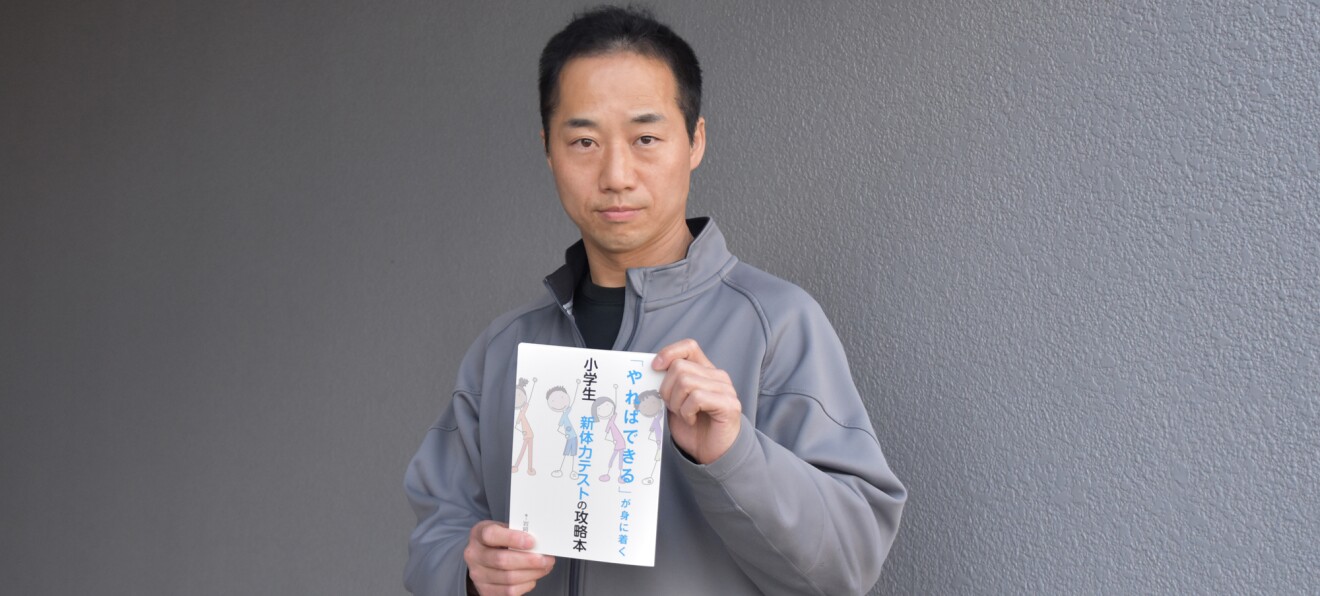 「やればできる」が身に着く
小学生 新体力テストの攻略本